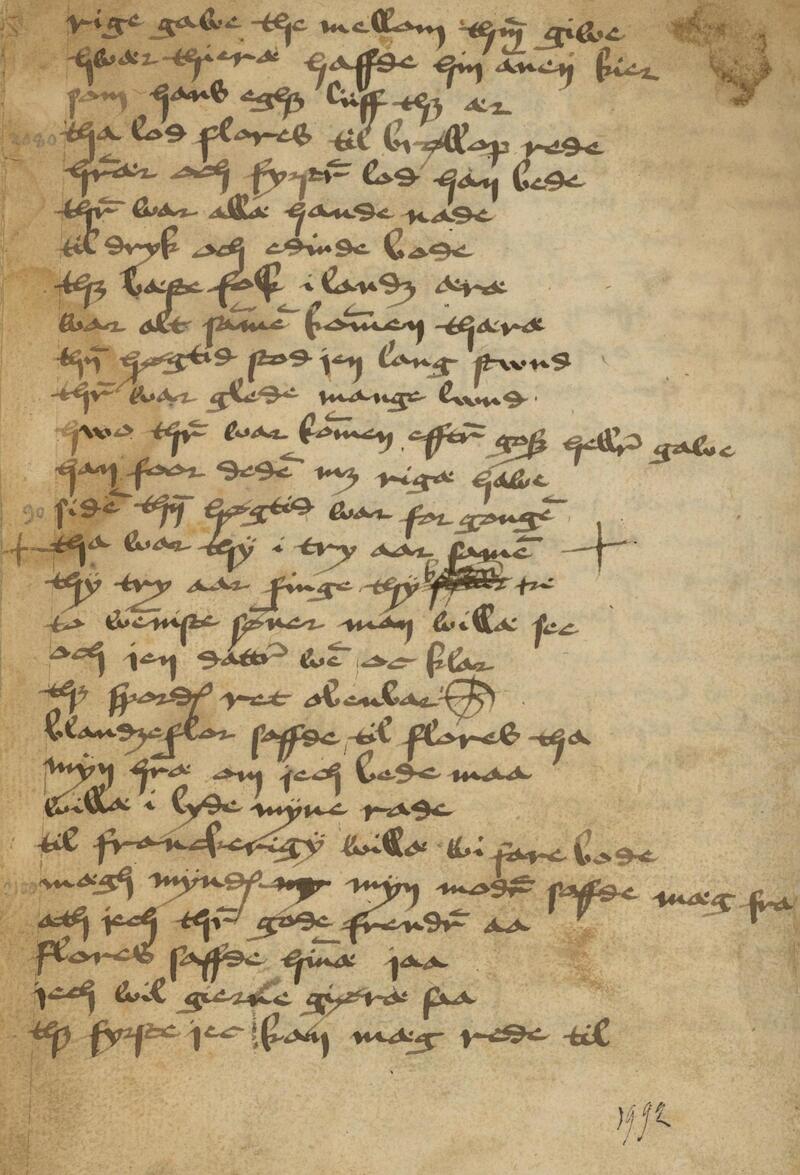 rige gawe the mellom thm̄ giwe
hwær thieræ haffde hin anen kier
som hans eghȝ liiff thȝ ær
2080 tha lod flores til brøllop rede
hr̄ær och fyrstr̄ lod han bede
thr̄ war allæ hande nade
til dryk och edinde bode
thȝ bæste folk i landȝ æræ
war alt sāmē kom̄en thæræ
thn̄ høgtid stod jen lang stwnd
thr̄ war glede mange lwnd
hwo thr̄ war kom̄en efftr̄ gotȝ hellr̄ gawe
han foor dedē mȝ rigæ hawe
90 sidē thn̄ høgtid war for gongē
tha war thÿ i try aar samē
thÿ try aar finge thÿ børn tre
to wēniste sønner man willæ see
och jen dattr̄ wē oc klar
thȝ spordȝ ret obenbar
blandzeflor saffde til flores tha
myn hr̄æ om jech bede maa
willæ i lyde mÿne rade
til franckerigÿ willæ wi fare bode
2100 mægh mÿndȝ myn modr̄ saffde mæg fra
ath jech thr̄ gode frendr̄ aa
flores saffde hin̄æ jaa
jech wil gierne giøræ saa
thȝ fyrste jec kan mæg rede til
1992